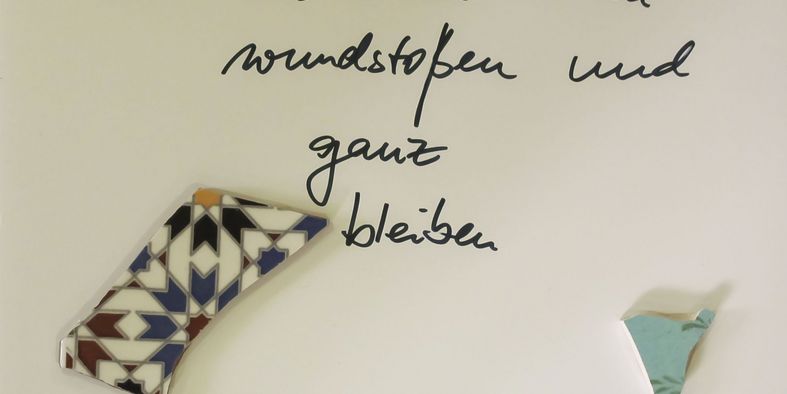 wundstoßen und
ganz
bleiben